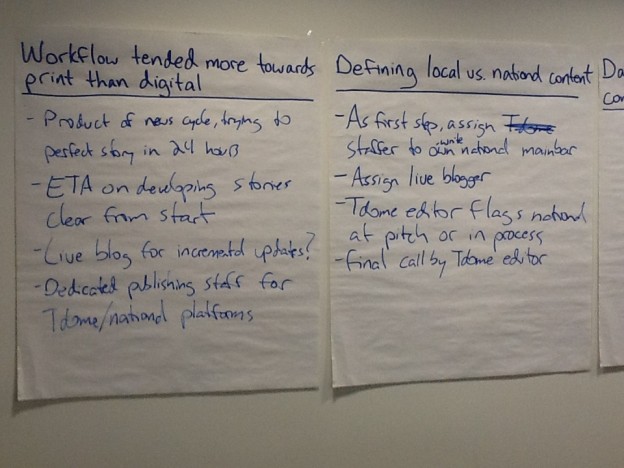 Workflow tended more towards
print than digital
- Product of news cycle, trying to
perfect story in 24 hours
- ETA on developing stories
clear from start
- Live blog for incremental updates?
- Dedicated publishing staff for
Tdome/national platforms
Defining local vs. national content
- As first step, assign Tdome
staffer to own/write national mainbar
- Assign live blogger
- Tdome editor flags national
at pitch or in process
- Final call by Tdome editor
Da
co